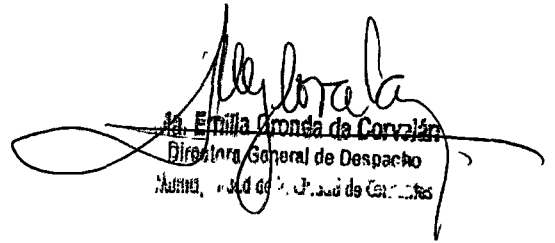 Emilia Gronda de Corvalán
Directora General de Despacho
de la Ciudad de Corrientes